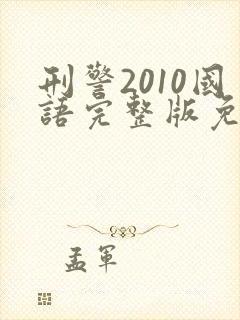 刑警2010國
語完整版免
孟軍